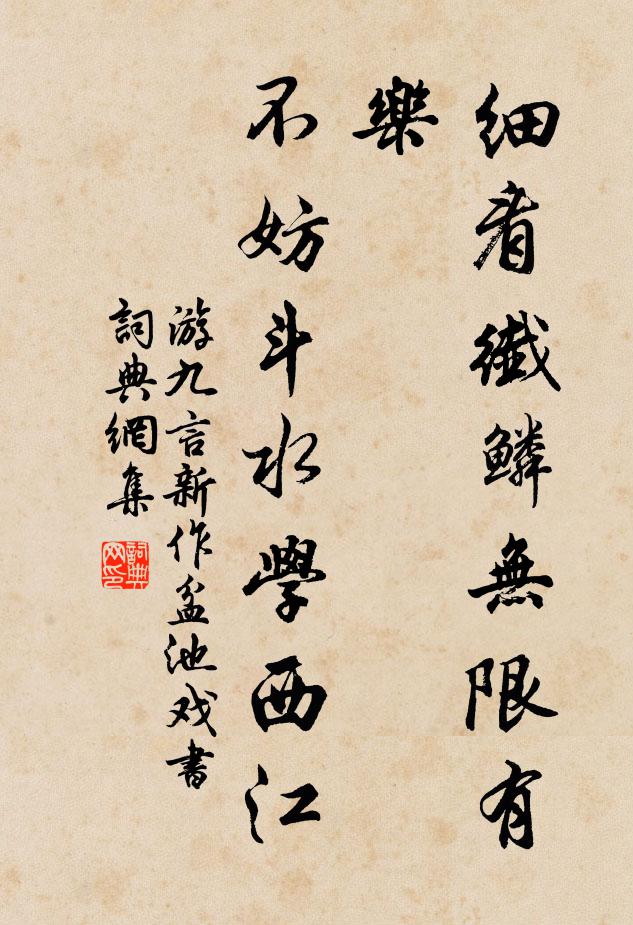 細看纖鱗無限有
樂
不妨斗水學西江
游九言新作盆池戏書
詞典網集
詞典网印